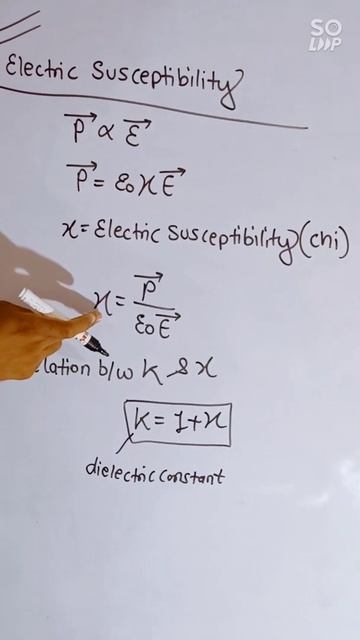 SO
LOOP
Electric Susceptibility
P ∝ E
P = ε0 χ E
χ = Electric Susceptibility (chi)
χ = P / ε0 E
lation b/w K & χ
K = 1 + χ
dielectric constant